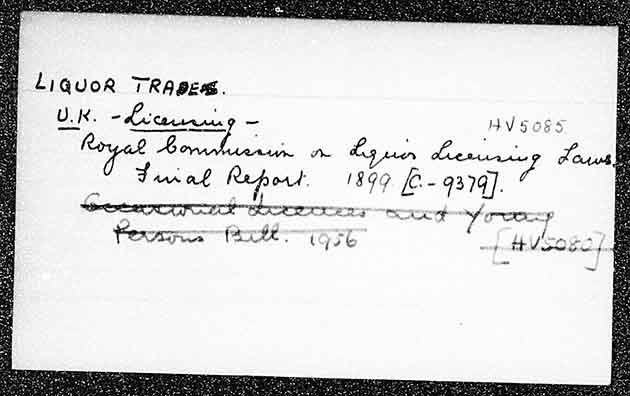 LIQUOR TRADE.
U.K. - Licensing -
HV5085
Royal Commission on Liquor Licensing Laws.
Final Report. 1899 [C.-9379].
Occasional Licences and Young
Persons Bill. 1956 [HV5080]